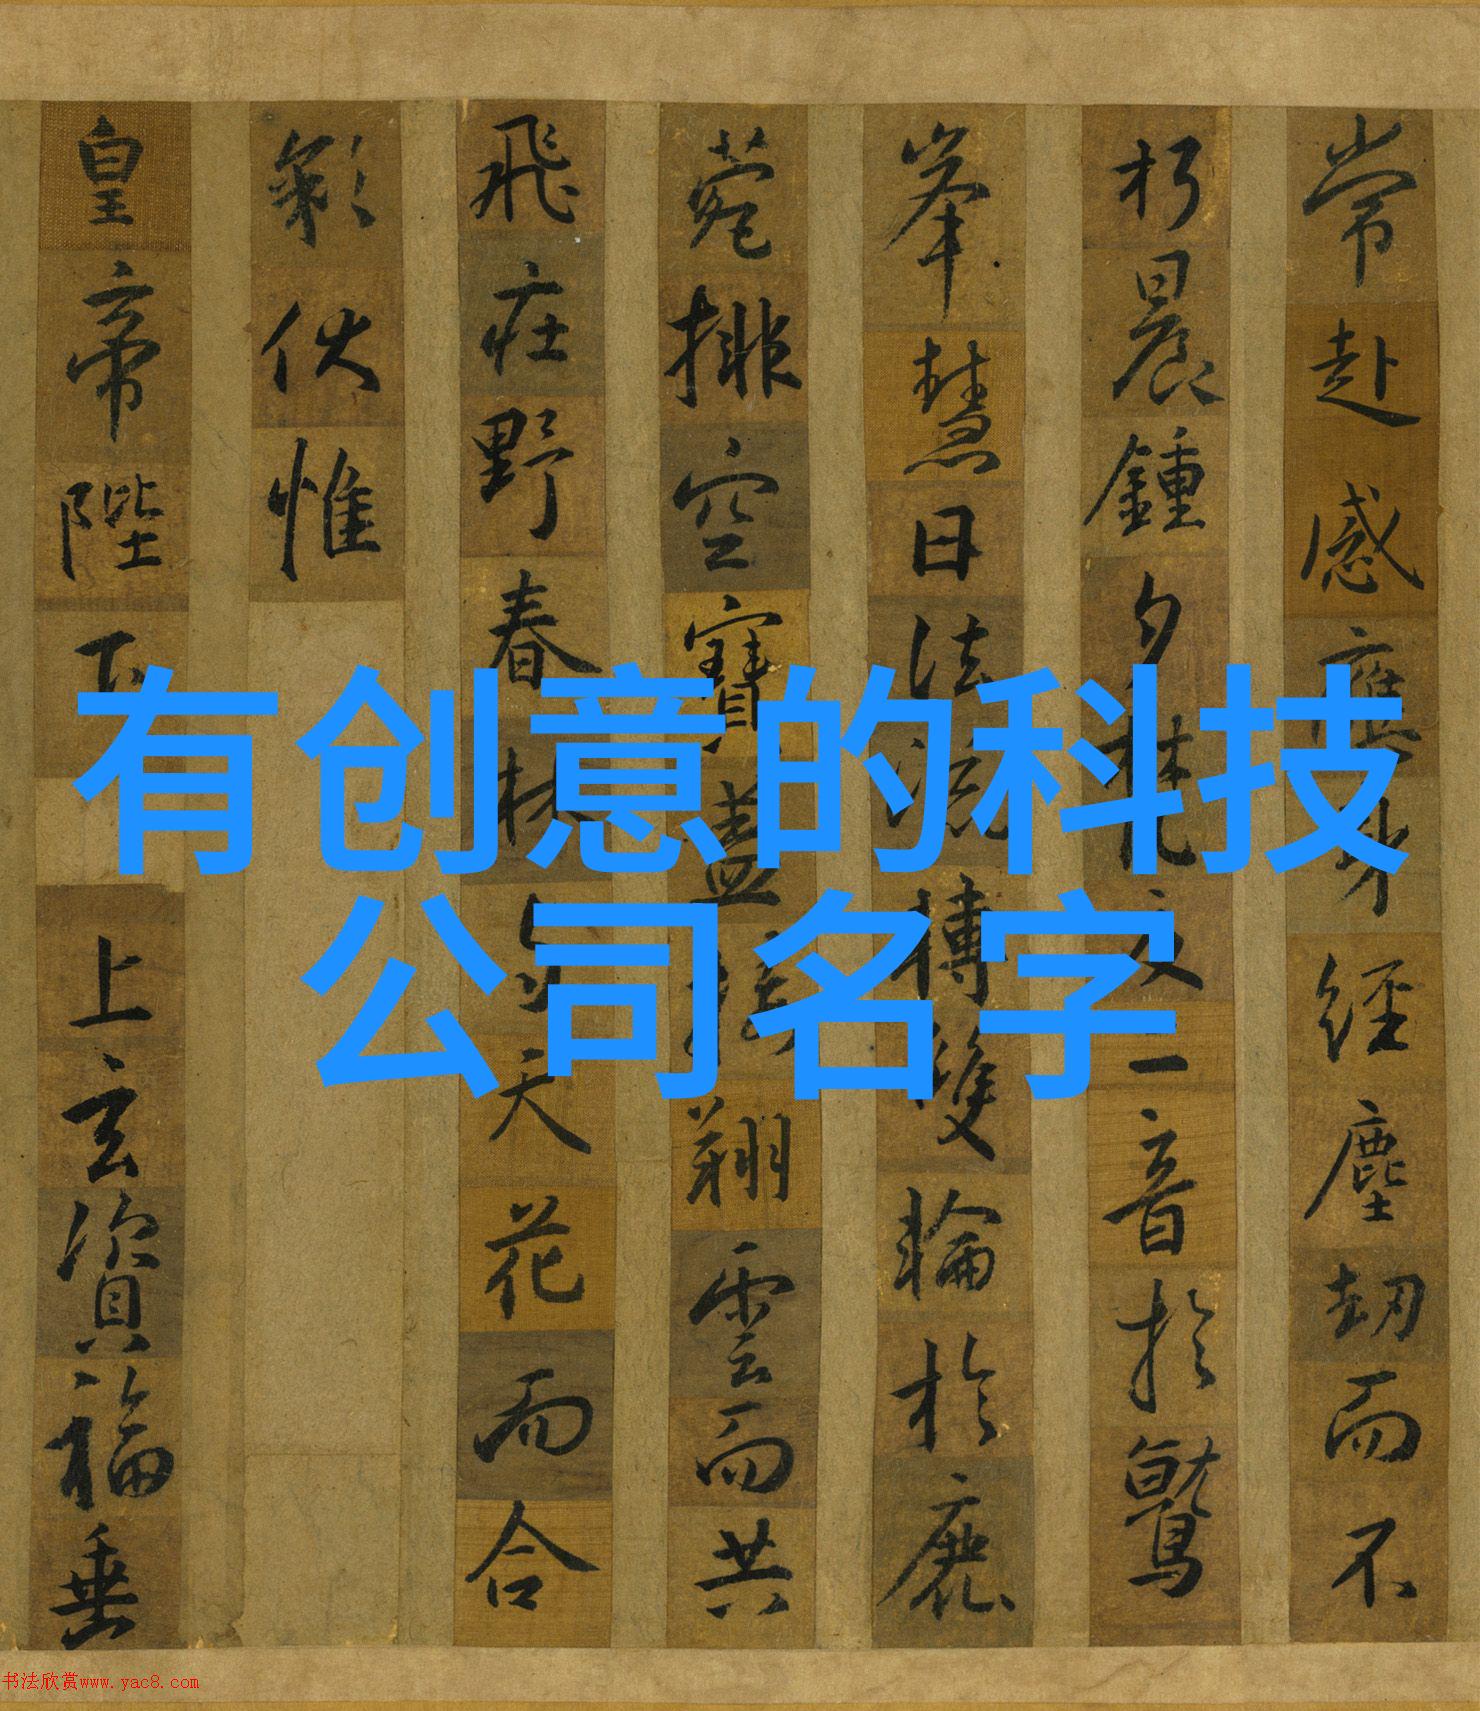 常赴感應身經塵劫而不
朽晨鍾夕梵交二音於鷲
峯慧日法流轉雙輪於鹿
菀排空寶蓋接翔雲而共
飛莊野春林与天花而合
彩伏惟
皇帝陛下上玄資福垂
有创意的科技
公司名字
书法欣赏www.yac8.com